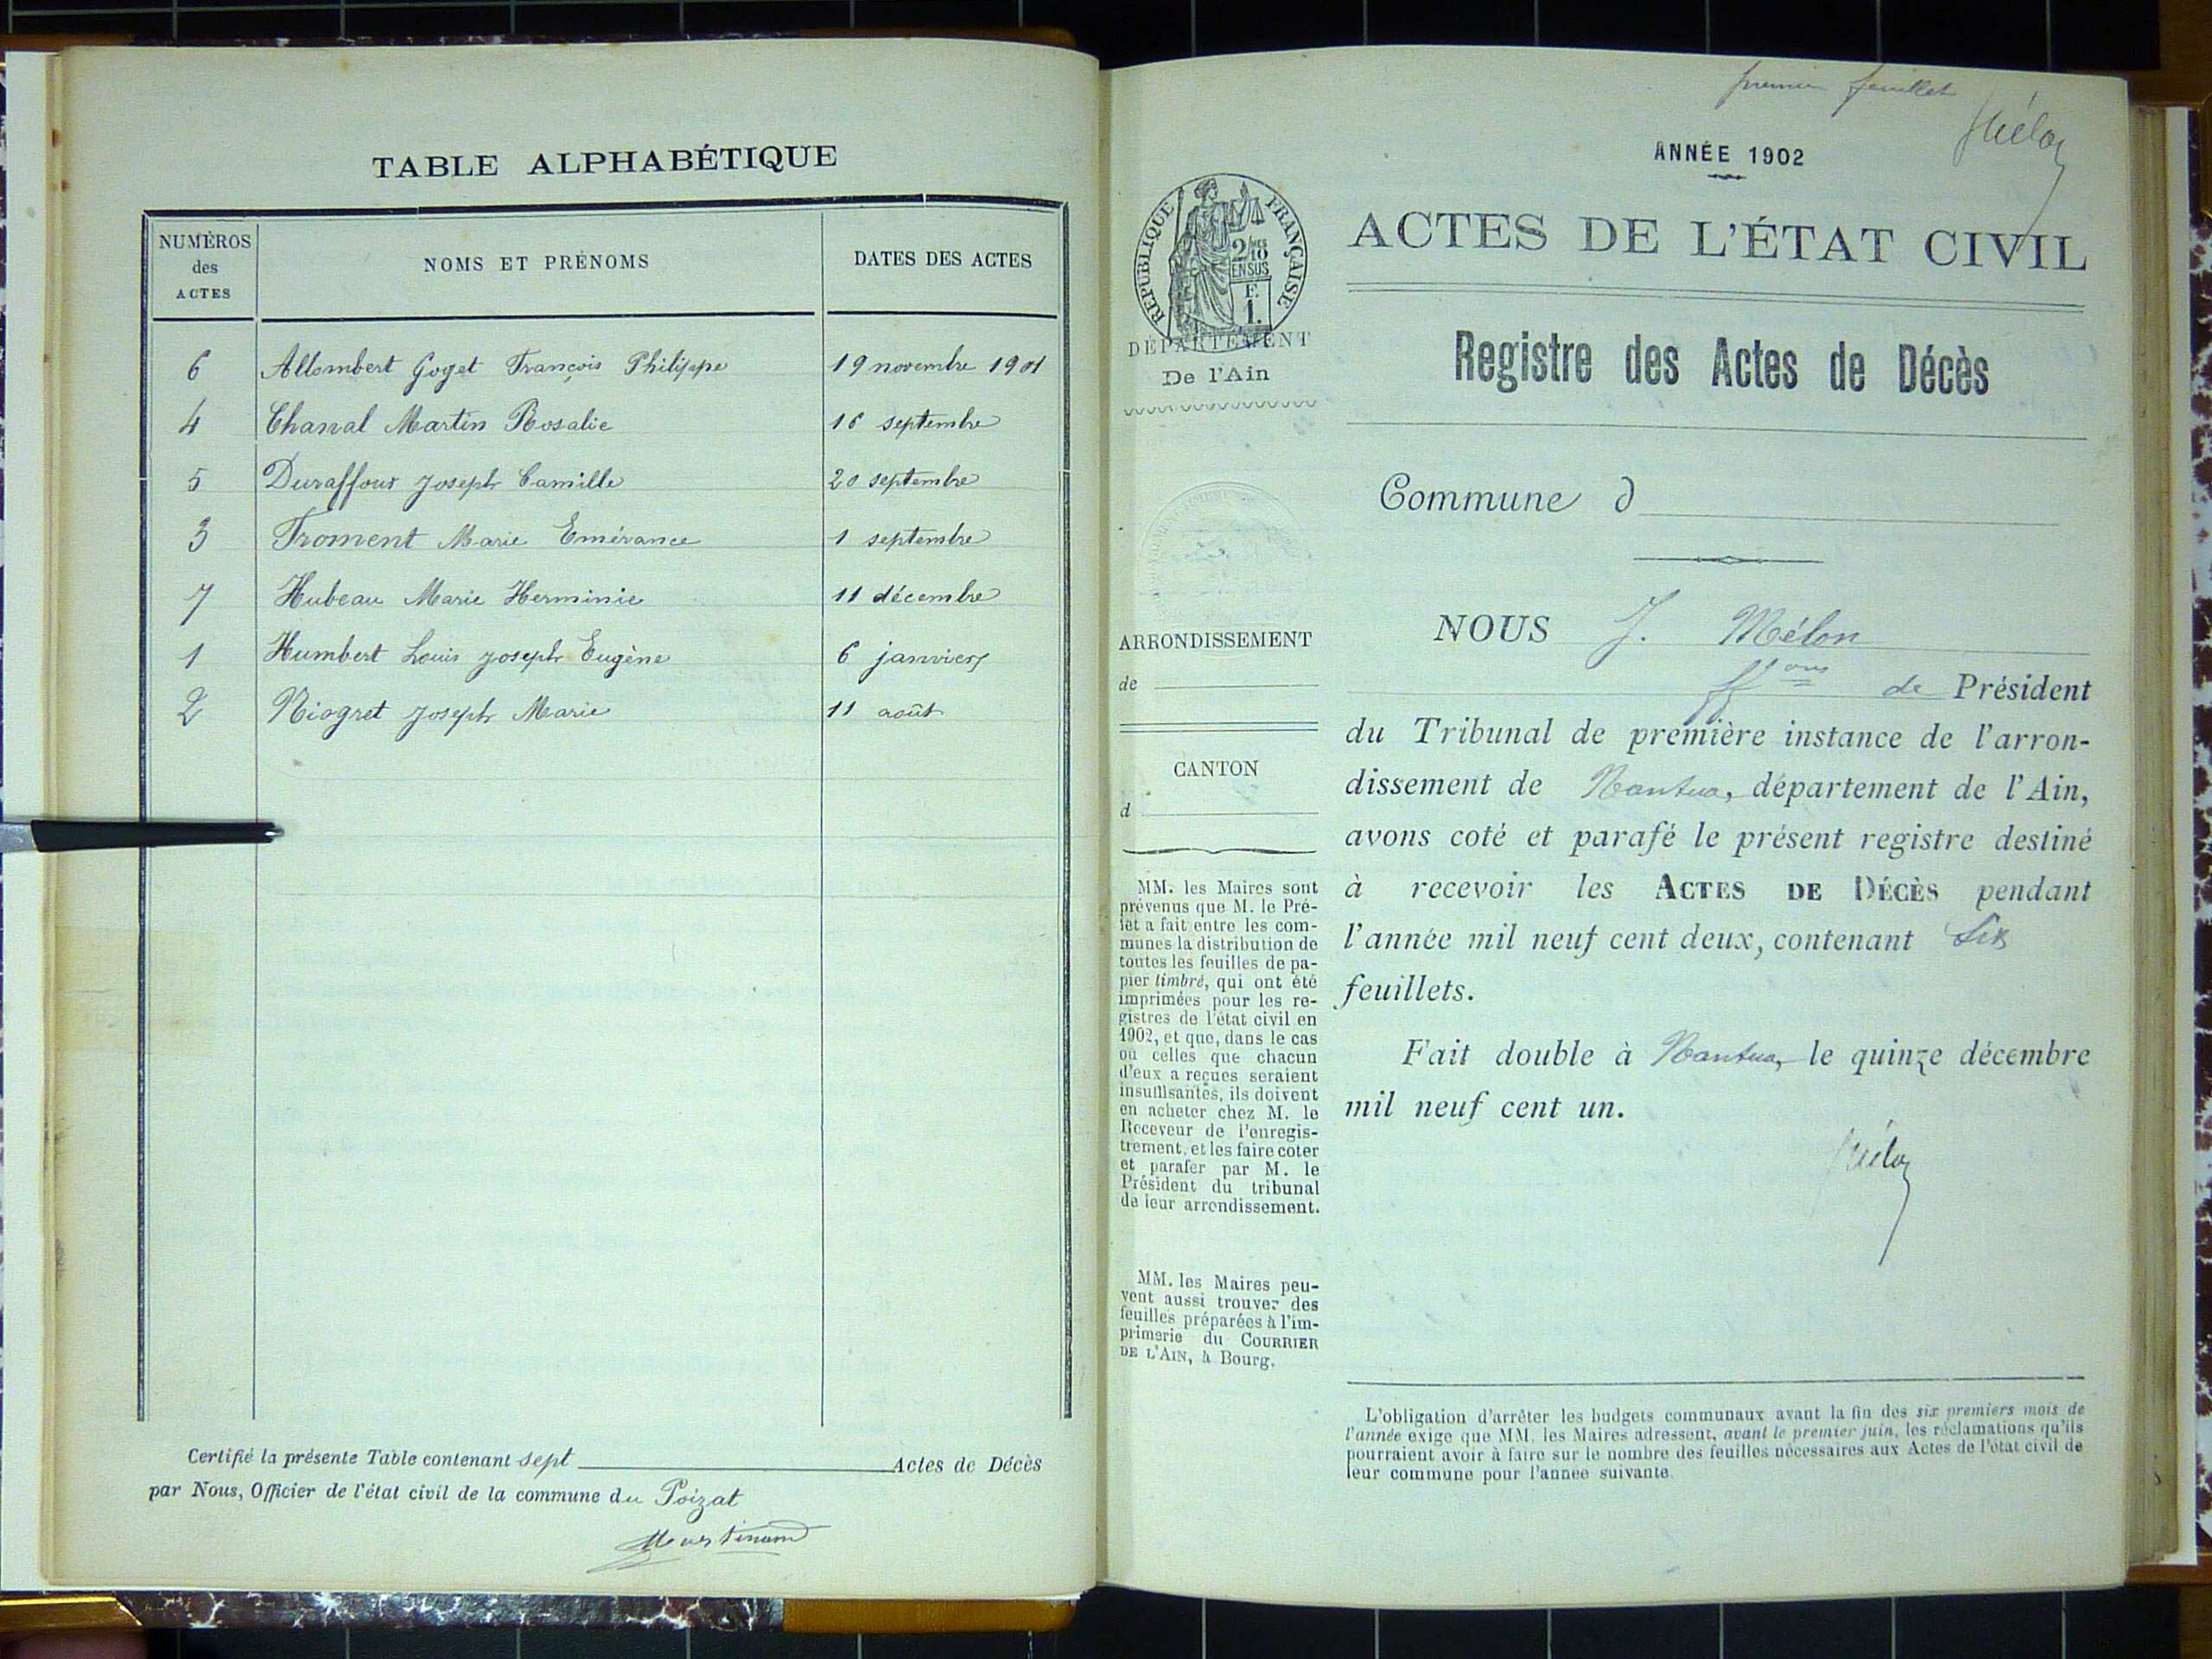 TABLE ALPHABÉTIQUE
NUMÉROS
des
ACTES
NOMS ET PRÉNOMS
DATES DES ACTES
6 Allombert Goget François Philippe 19 novembre 1901
4 Chanal Martin Rosalie 16 septembre
5 Duraffour Joseph Camille 20 septembre
3 Froment Marie Emérance 1 septembre
7 Hubeau Marie Herminie 11 décembre
1 Humbert Louis Joseph Eugène 6 janvier
2 Niogret Joseph Marie 11 août
Certifié la présente Table contenant sept Actes de Décès
par Nous, Officier de l'état civil de la commune du Poizat
premier feuillet
ANNÉE 1902
RÉPUBLIQUE FRANÇAISE
2/10
EN SUS
F.
1.
DÉPARTEMENT
De l'Ain
ARRONDISSEMENT
de
CANTON
d
MM. les Maires sont
prévenus que M. le Pré-
fet a fait entre les com-
munes la distribution de
toutes les feuilles de pa-
pier timbré, qui ont été
imprimées pour les re-
gistres de l'état civil en
1902, et que, dans le cas
où celles que chacun
d'eux a reçues seraient
insuffisantes, ils doivent
en acheter chez M. le
Receveur de l'enregis-
trement, et les faire coter
et parafer par M. le
Président du tribunal
de leur arrondissement.
MM. les Maires peu-
vent aussi trouver des
feuilles préparées à l'im-
primerie du COURRIER
DE L'AIN, à Bourg.
ACTES DE L'ÉTAT CIVIL
Registre des Actes de Décès
Commune d
NOUS J. Mélon
ffons de Président
du Tribunal de première instance de l'arron-
dissement de Nantua, département de l'Ain,
avons coté et parafé le présent registre destiné
à recevoir les ACTES DE DÉCÈS pendant
l'année mil neuf cent deux, contenant Six
feuillets.
Fait double à Nantua, le quinze décembre
mil neuf cent un.
L'obligation d'arrêter les budgets communaux avant la fin des six premiers mois de
l'année exige que MM. les Maires adressent, avant le premier juin, les réclamations qu'ils
pourraient avoir à faire sur le nombre des feuilles nécessaires aux Actes de l'état civil de
leur commune pour l'année suivante.